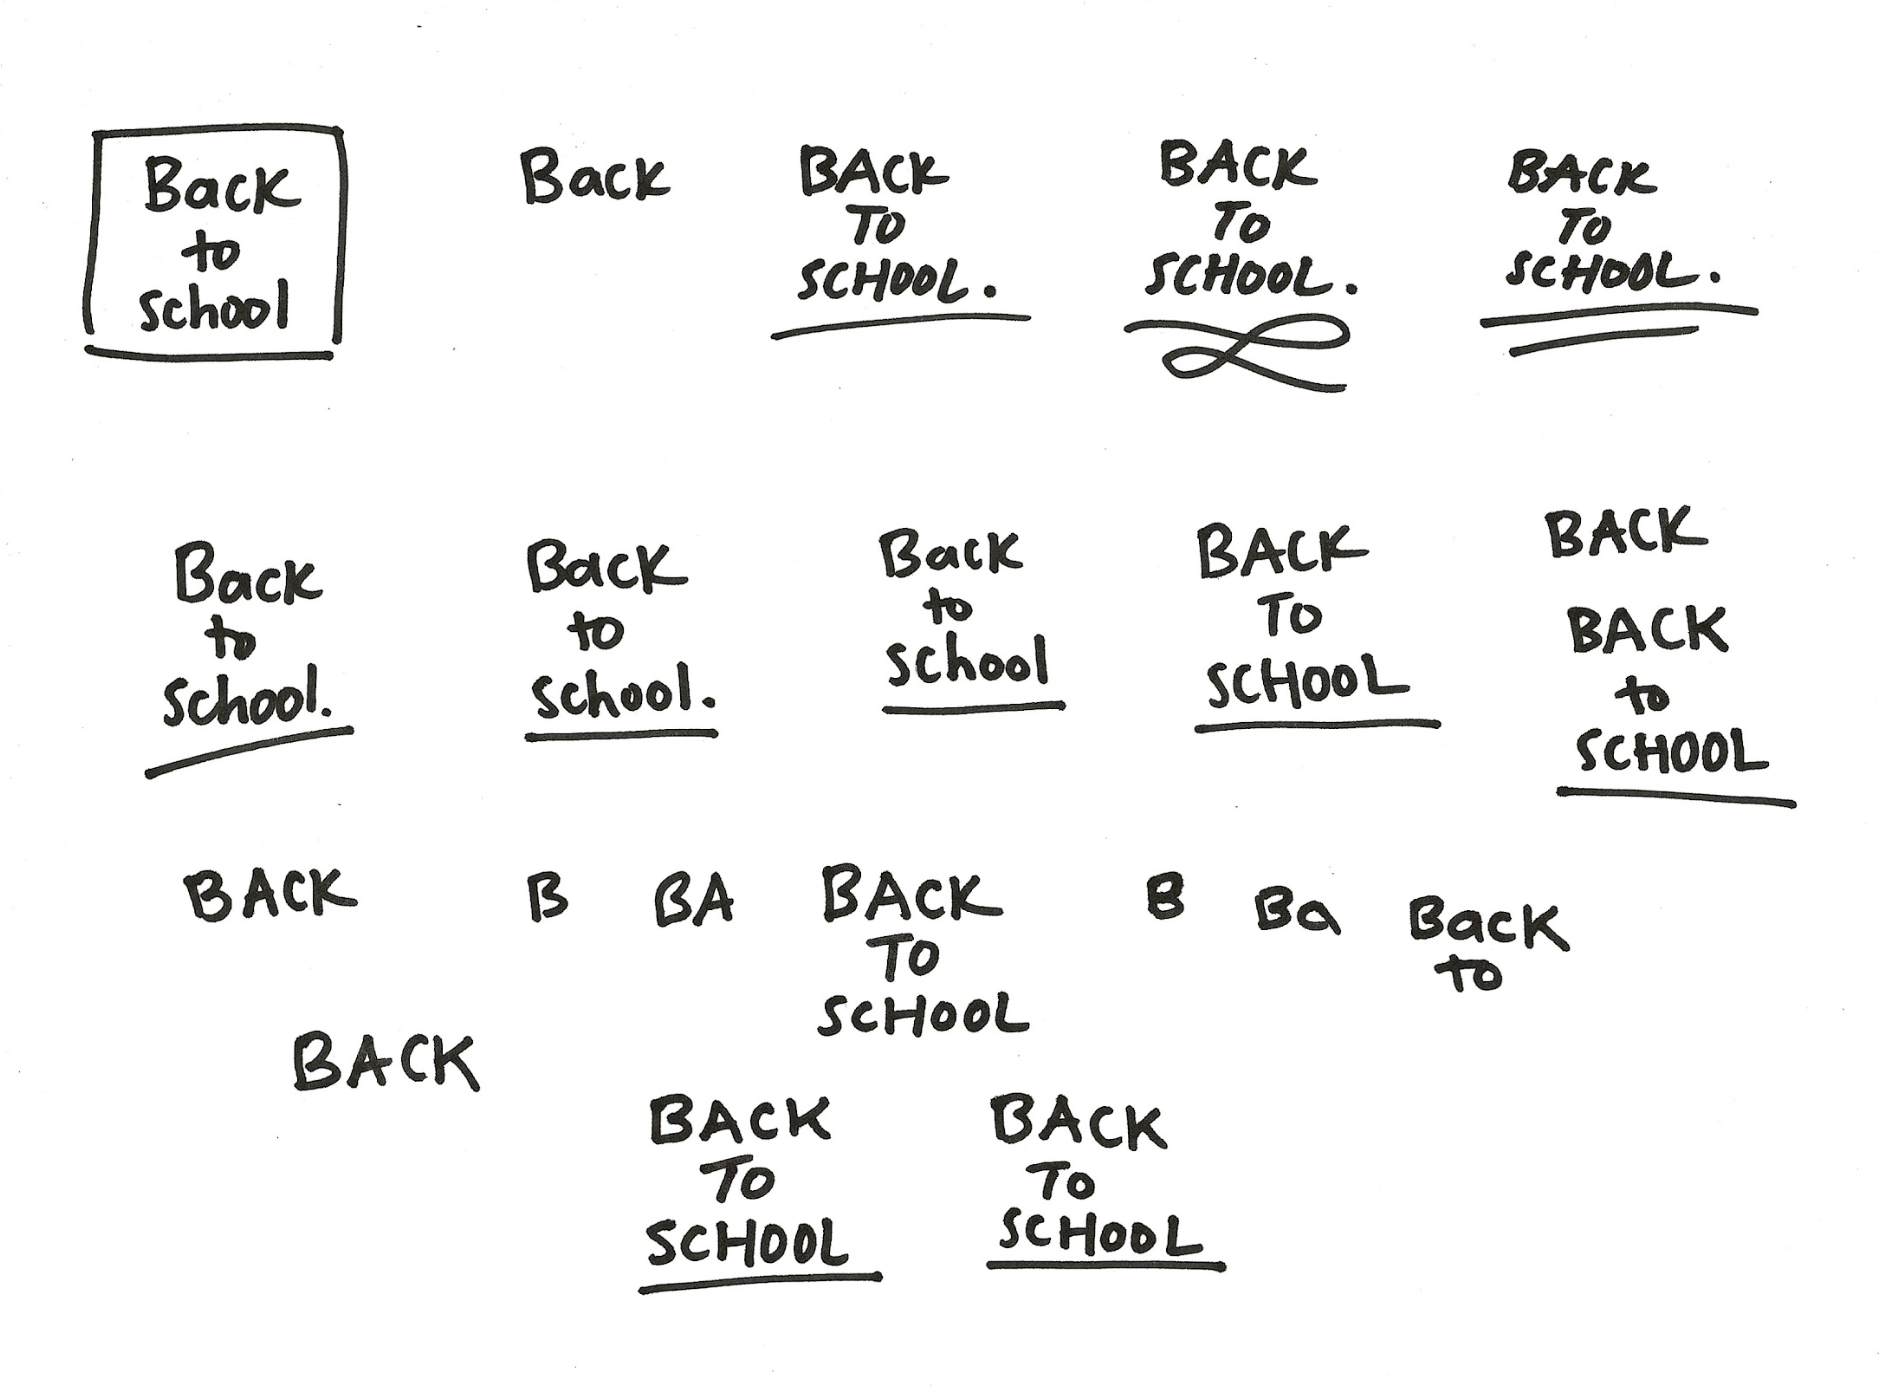 Back
to
school
Back
BACK
TO
SCHOOL.
BACK
TO
SCHOOL.
BACK
TO
SCHOOL.
Back
to
school.
Back
to
school.
Back
to
school
BACK
TO
SCHOOL
BACK
BACK
to
SCHOOL
BACK
B
BA
BACK
TO
SCHOOL
B
Ba
Back
to
BACK
BACK
TO
SCHOOL
BACK
TO
SCHOOL